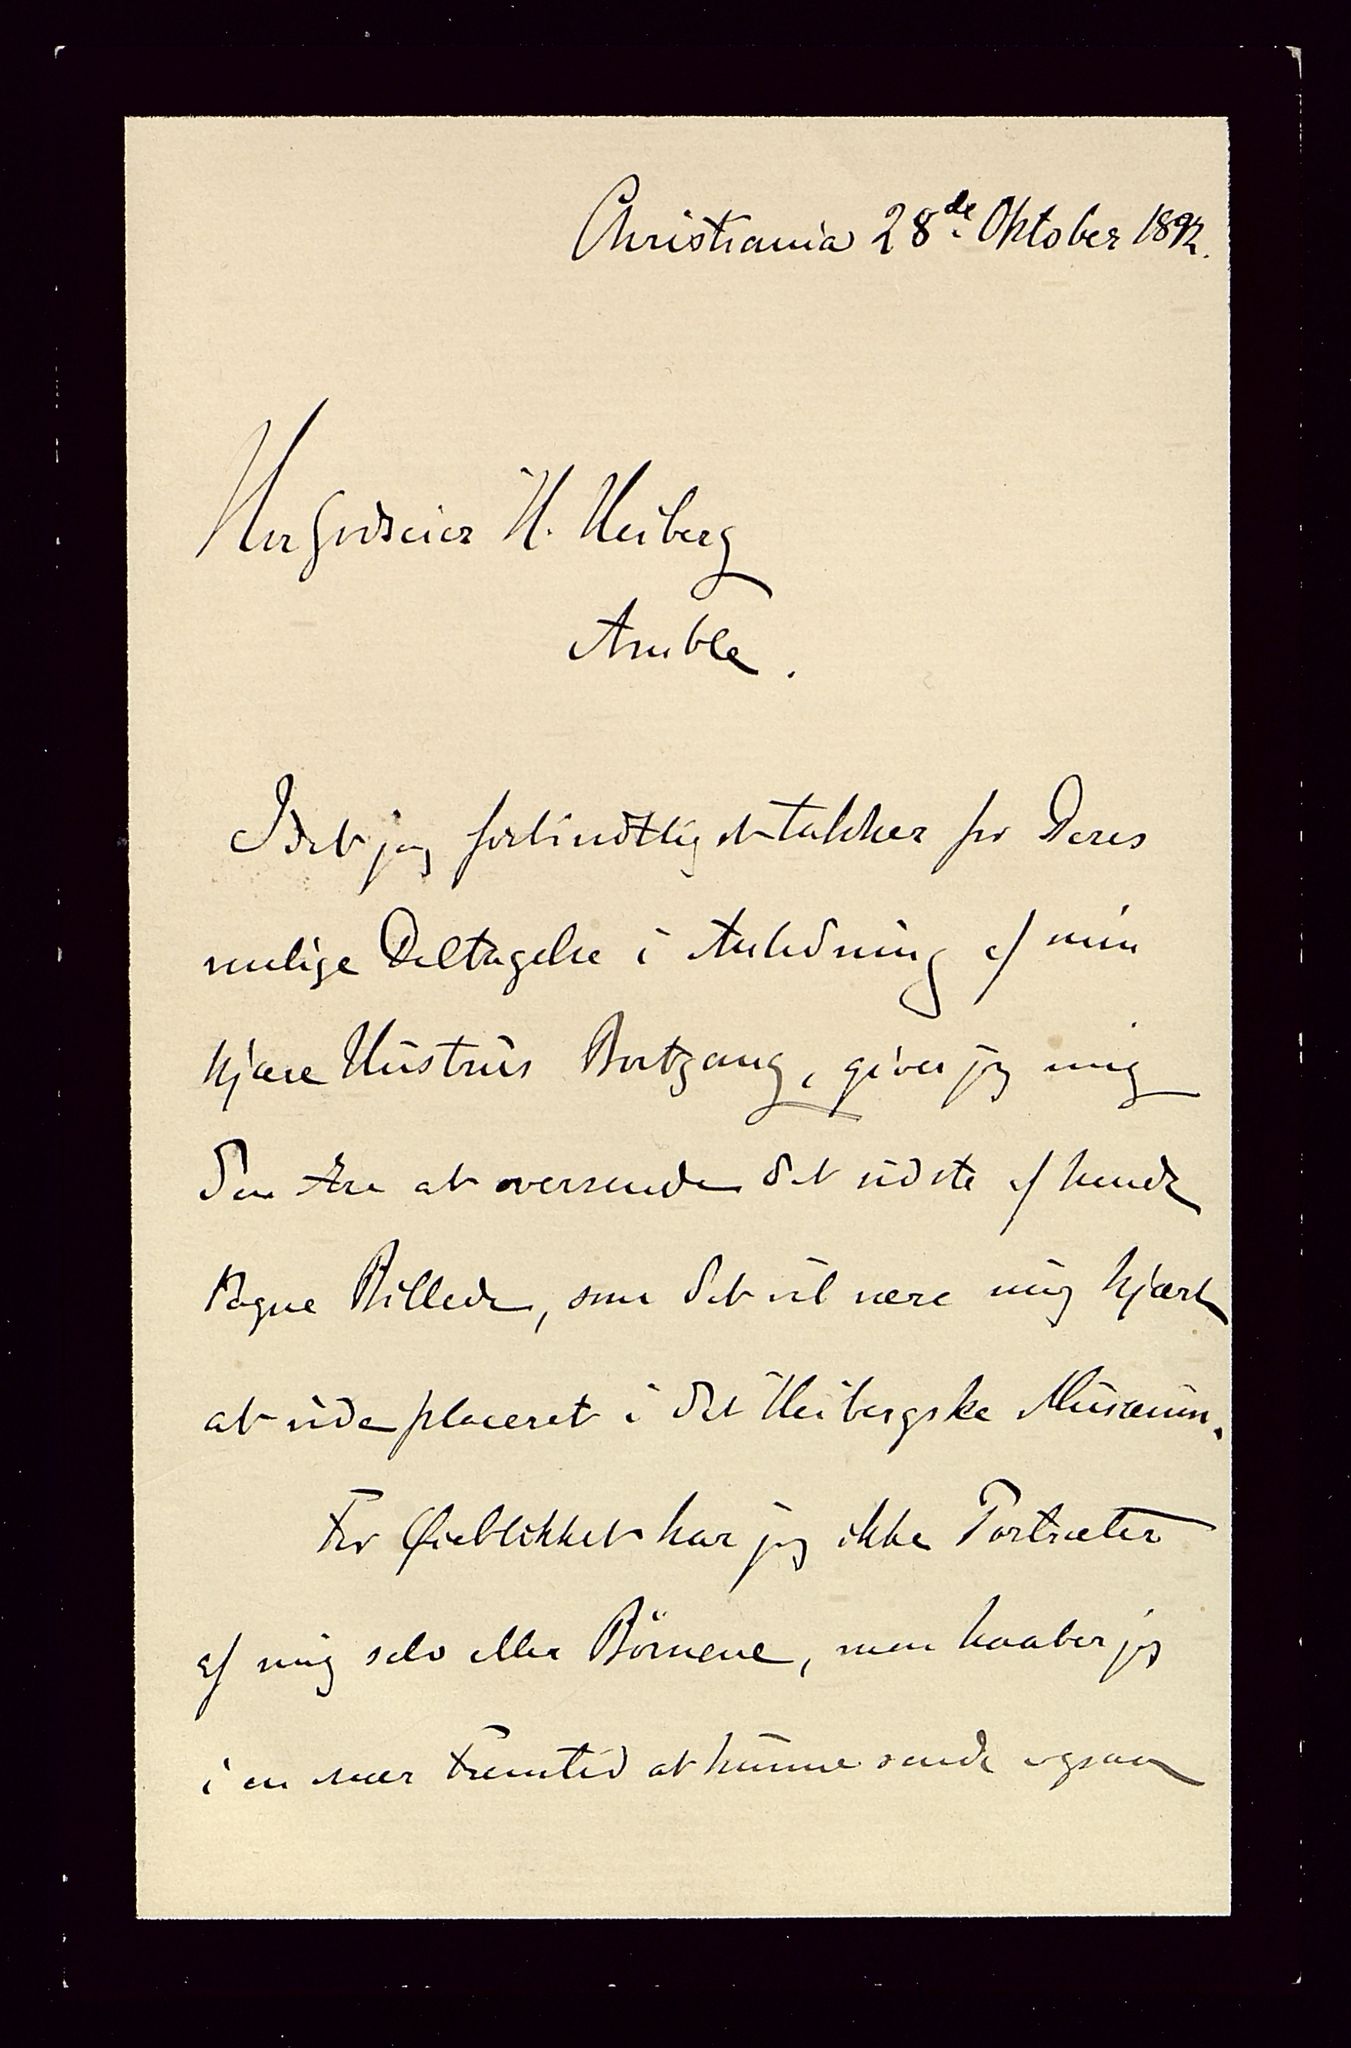 Christiania 28de Oktober 1892.
Herr Godseier H. Heiberg
Amble.
Idet jeg forbindtligst takker for Deres
venlige Deltagelse i Anledning af min
kjære Hustrus Bortgang, giver jeg mig
den Ære at oversende det sidste af hende
tagne Billede, som det vil være mig kjært
at vide placeret i det Heibergske Musæum.
For Øieblikket har jeg ikke Portræter
af mig selv eller Börnene, men haaber jeg
i en nær Fremtid at kunne sende ogsaa